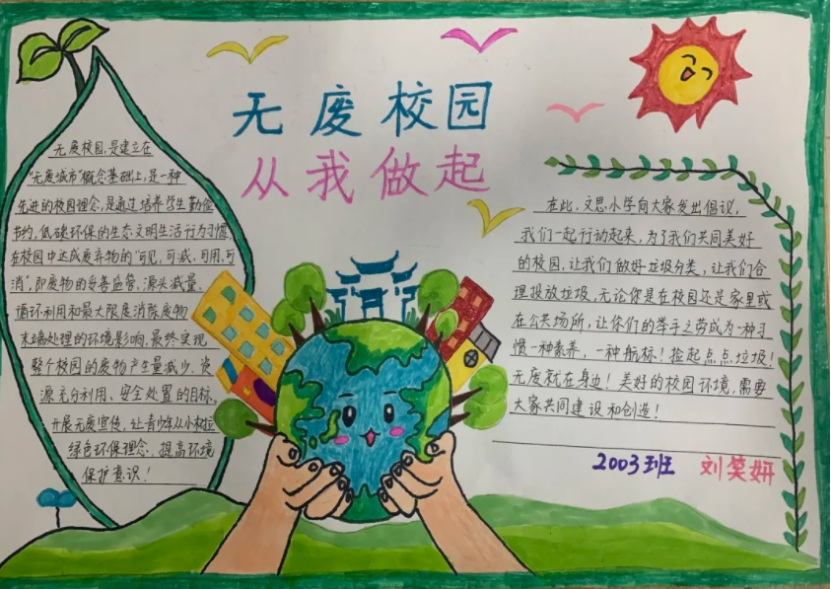 无废校园
从我做起
无废校园,是建立在
“无废城市”概念基础上,是一种
先进的校园理念,是通过培养学生勤俭
节约,低碳环保的生态文明生活行为习惯,
在校园中达成废弃物的“可见,可减,可用,可
消”,即废物的妥善监管,源头减量,
循环利用和最大限度消除废物
末端处理的环境影响,最终实现
整个校园的废物产生量减少,资
源充分利用、安全处置的目标。
开展无废宣传,让青少年从小树立
绿色环保理念,提高环境
保护意识!
在此,文思小学向大家发出倡议,
我们一起行动起来,为了我们共同美好
的校园,让我们做好垃圾分类,让我们合
理投放垃圾,无论你是在校园还是家里或
在公共场所,让你们的举手之劳成为一种习
惯一种素养,一种航标!捡起点点垃圾!
无废就在身边!美好的校园环境,需要
大家共同建设和创造!
2003班 刘笑妍